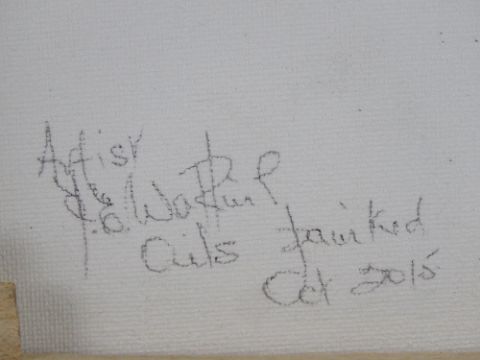 Artist
Oils Painted
Oct 2015